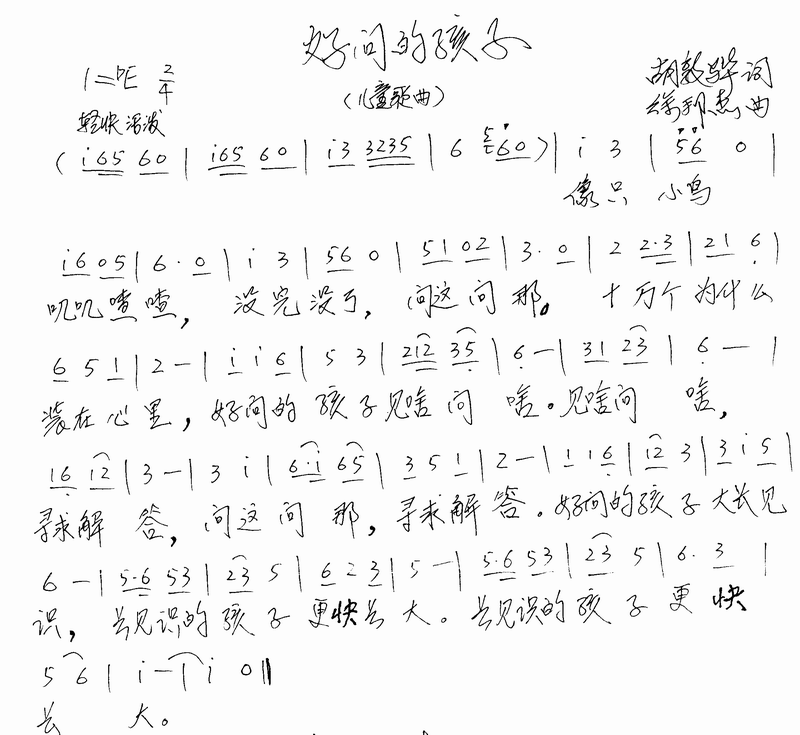 好问的孩子
1=bE 2/4
(儿童歌曲)
胡敦骅词
轻快活泼
徐邦杰曲
(i65 60|i65 60|i3 3235|6 560)|i 3|56 0|
像只 小鸟
i605|6·0|i 3|56 0|5102|3·0|2 2·3|21 6|
叽叽喳喳，没完没了，问这问那。十万个为什么
6 5 1|2-|i i 6|5 3|212 35|6-|31 23|6-|
装在心里，好问的孩子见啥问啥。见啥问啥，
16 12|3-|3 i|6·i 65|3 5 1|2-|1 16|12 3|3 i 5|
寻求解答，问这问那，寻求解答。好问的孩子大长见
6-|5·6 53|23 5|6 2 3|5-|5·6 53|23 5|6·3|
识，长见识的孩子更快长大。长见识的孩子更快
5 6|i-|i 0‖
长大。